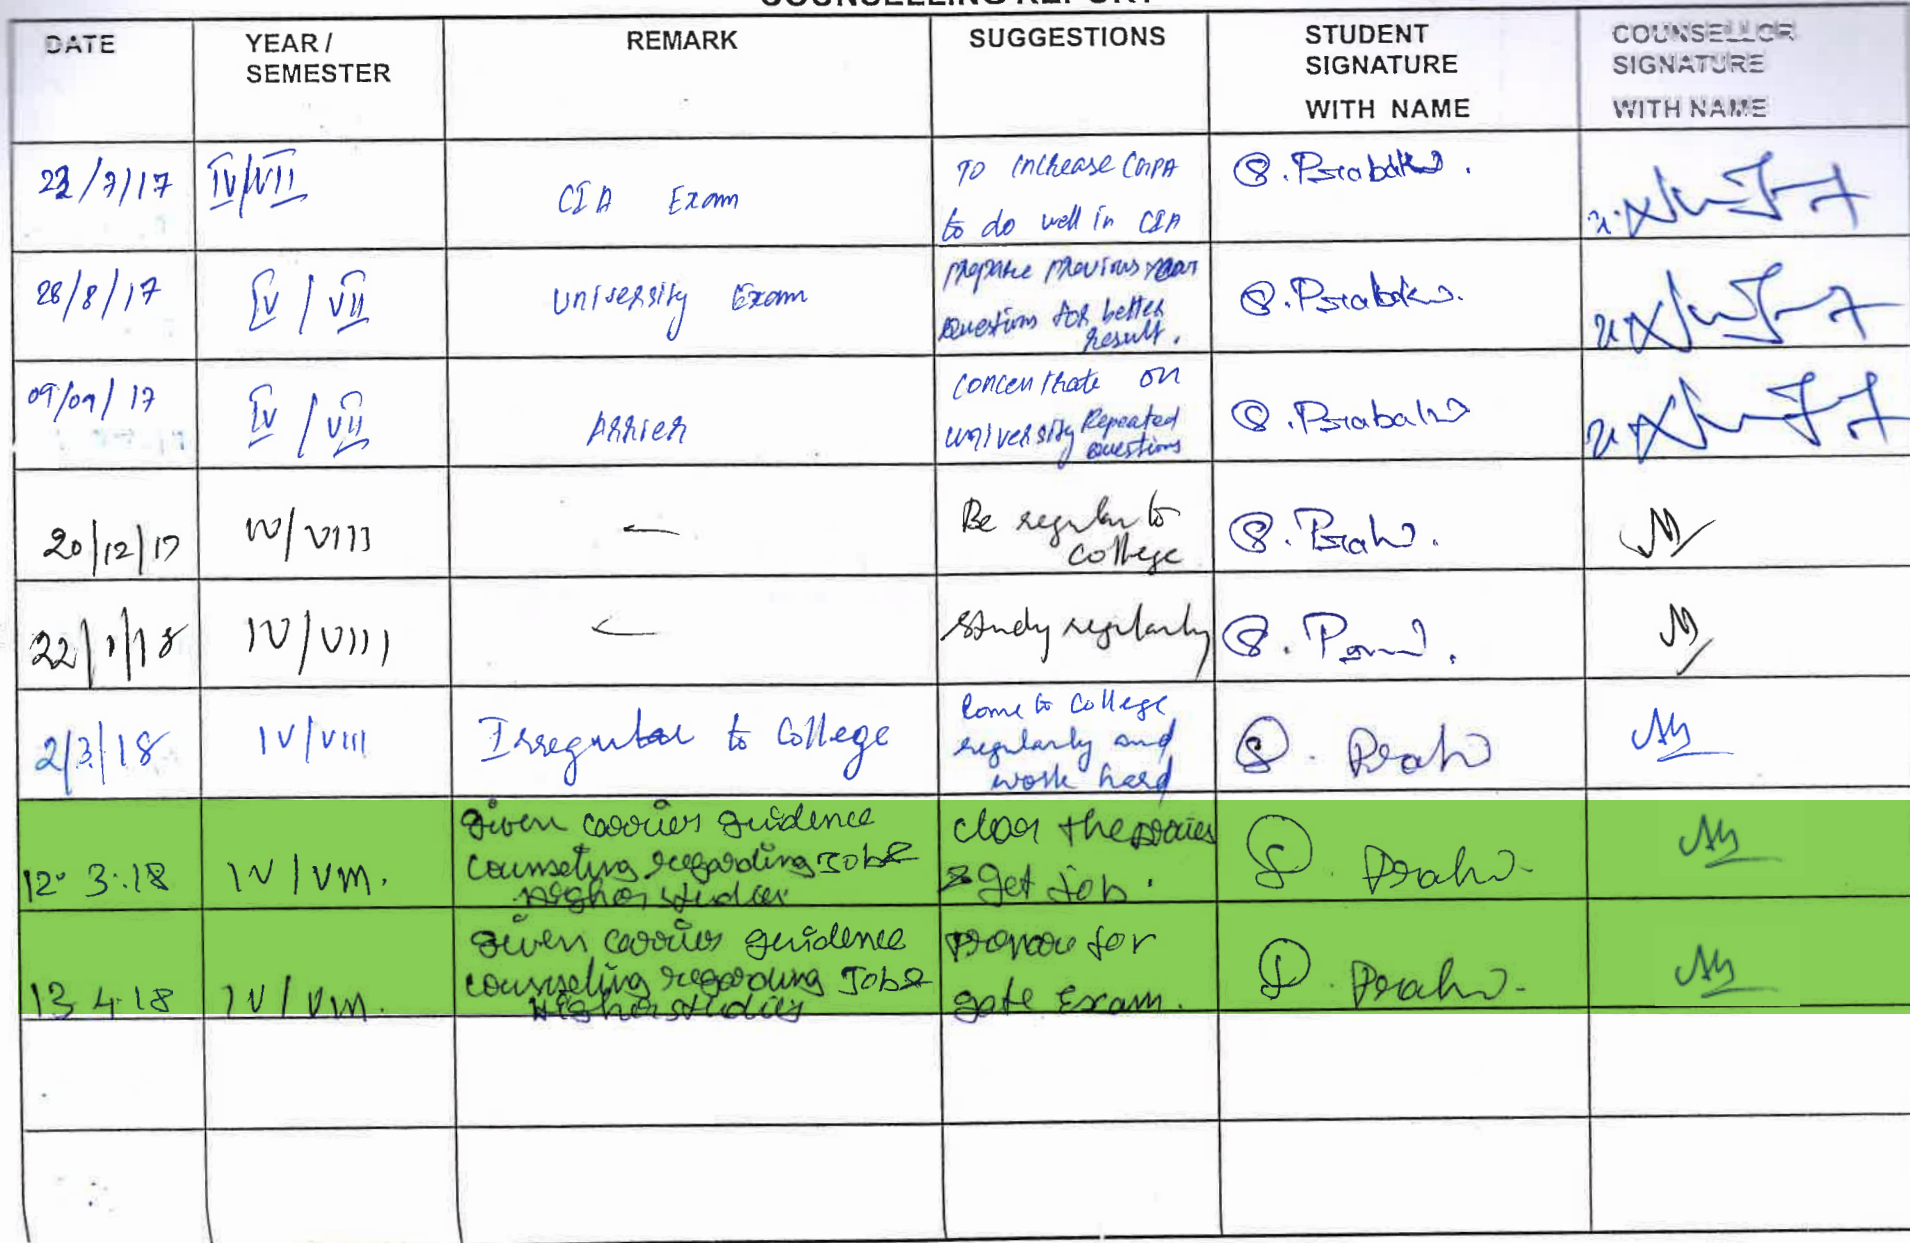 COUNSELLING REPORT
DATE
YEAR /
SEMESTER
REMARK
SUGGESTIONS
STUDENT
SIGNATURE
WITH NAME
COUNSELLOR
SIGNATURE
WITH NAME
/7/17
IV/VII
CIA Exam
To increase CGPA
to do well in CIA
S. Prabak
28/8/17
IV / VII
University Exam
prepare previous year
questions for better
result.
S. Prabak
09/09/17
IV / VII
Arrier
concentrate on
university Repeated
questions
S. Prabak
20/12/17
IV/VIII
Be regular to
college
22/1/18
IV/VIII
study regularly
2/3/18
IV/VIII
Irregular to College
Come to College
regularly and
work hard
12.3.18
IV / VIII.
given carrier guidence
counseling regarding Job &
higher studies
clear the
& get job.
13 4.18
IV / VIII.
given carrier guidence
counseling regarding Job &
Higher studies
prepare for
gate Exam.